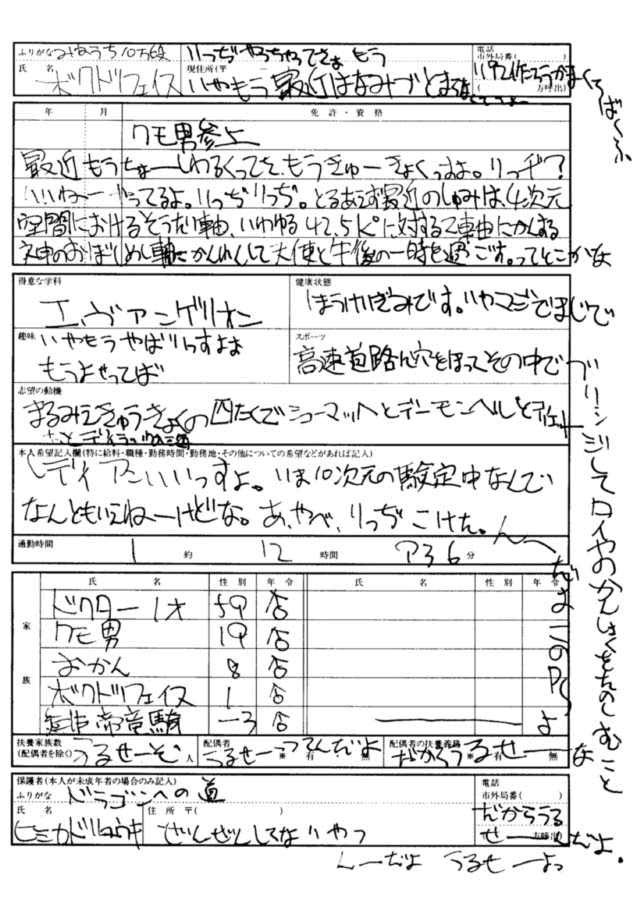 ふりがな みねうち10万段
りっぢやっちゃってさぁ もう
電話
市外局番( )
氏 名 ボクドフェイス
現住所(〒
いやもう最近はなみづとまらなくてさぁ
( 方呼出)
年 月 免 許 ・ 資 格
クモ男参上
最近もうちょーしわるくってさ、もうきゅーきょくっすよ。りっぢ?
いいねー やってるよ。りっぢりっぢ。とりあえず最近のしゅみは4次元
空間におけるそうだ軸、いわゆる42.5K°に対するZ軸にかんする
ネ申のおぼしめし軸にかんれんして天使と午後の一時を過ごす。ってとこかな
得意な学科
健康状態
エヴァンゲリオン
ほうけいぎみです。いやマジでまじで
趣味
いやもうやばいっすよぉ
もうよせってば
スポーツ
高速道路に穴をほってその中で
ブリッジしてロイヤのかんしょくをたのしむこと
志望の動機
まるみえきゅうきょくの四たくでシューマッハとデーモンヒルと
本人希望記入欄(特に給料・職種・勤務時間・勤務地・その他についての希望などがあれば記入)
レディアンいいっすよ。いま10次元の験定中なんで
なんともいえねーけどな。あ、やべ、りっぢこけた。
通勤時間
1 約 12 時間 ア36 分
んーだよこのPCよ
氏 名 性 別 年 令 氏 名 性 別 年 令
家
族
ドクター1才 59 店
クモ男 19 店
おかん 8 店
ボクドフェイス 1 店
帝竜騎 -3 店
扶養家族数
(配偶者を除く) うるせーぞ 人
配偶者 うるせーってんだよ ※ 有 無
配偶者の扶養義務 だからうるせーな ※ 有 無
保護者(本人が未成年者の場合のみ記入)
ふりがな ドラゴンへの道
電話
市外局番( )
氏 名
住 所(〒 )
ヒミカドリュウキ
ぜんぜんしてないやつ
だからうる
せーんだよ.
方呼出)
んーだよ うるせーよっ